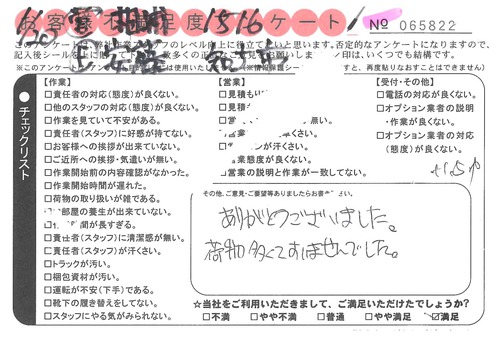 お客様不満足度1516アンケート
No 065822
このアンケートは、弊社作業スタッフのレベル向上に役立てたいと思います。否定的なアンケートになりますので、
【作業】
□責任者の対応(態度)が良くない。
□他のスタッフの対応(態度)が良くない。
□作業を見ていて不安がある。
□責任者(スタッフ)に好感が持てない。
□お客様への挨拶が出来ていない。
□ご近所への挨拶・気遣いが無い。
□作業開始前の内容確認がなかった。
□作業開始時間が遅れた。
□荷物の取り扱いが雑である。
部屋の養生が出来ていない。
間が長すぎる。
□責任者(スタッフ)に清潔感が無い。
□責任者(スタッフ)が汗くさい。
□トラックが汚い。
□梱包資材が汚い。
□運転が不安(下手)である。
□靴下の履き替えをしてない。
□スタッフにやる気がみられない。
チェックリスト
【営業】
□見積も
□見積り
無い。
い。
汗くさい。
業態度が良くない。
□営業の説明と作業が一致してない。
【受付・その他】
□電話の対応が良くない。
□オプション業者の説明
・作業が良くない。
□オプション業者の対応
(態度)が良くない。
その他、ご意見・ご要望等ありましたらお書
ありがとうございました。
荷物多くてすみませんでした。
☆当社をご利用いただきまして、ご満足いただけたでしょうか?
□不満 □やや不満 □普通 □やや満足 ☑満足